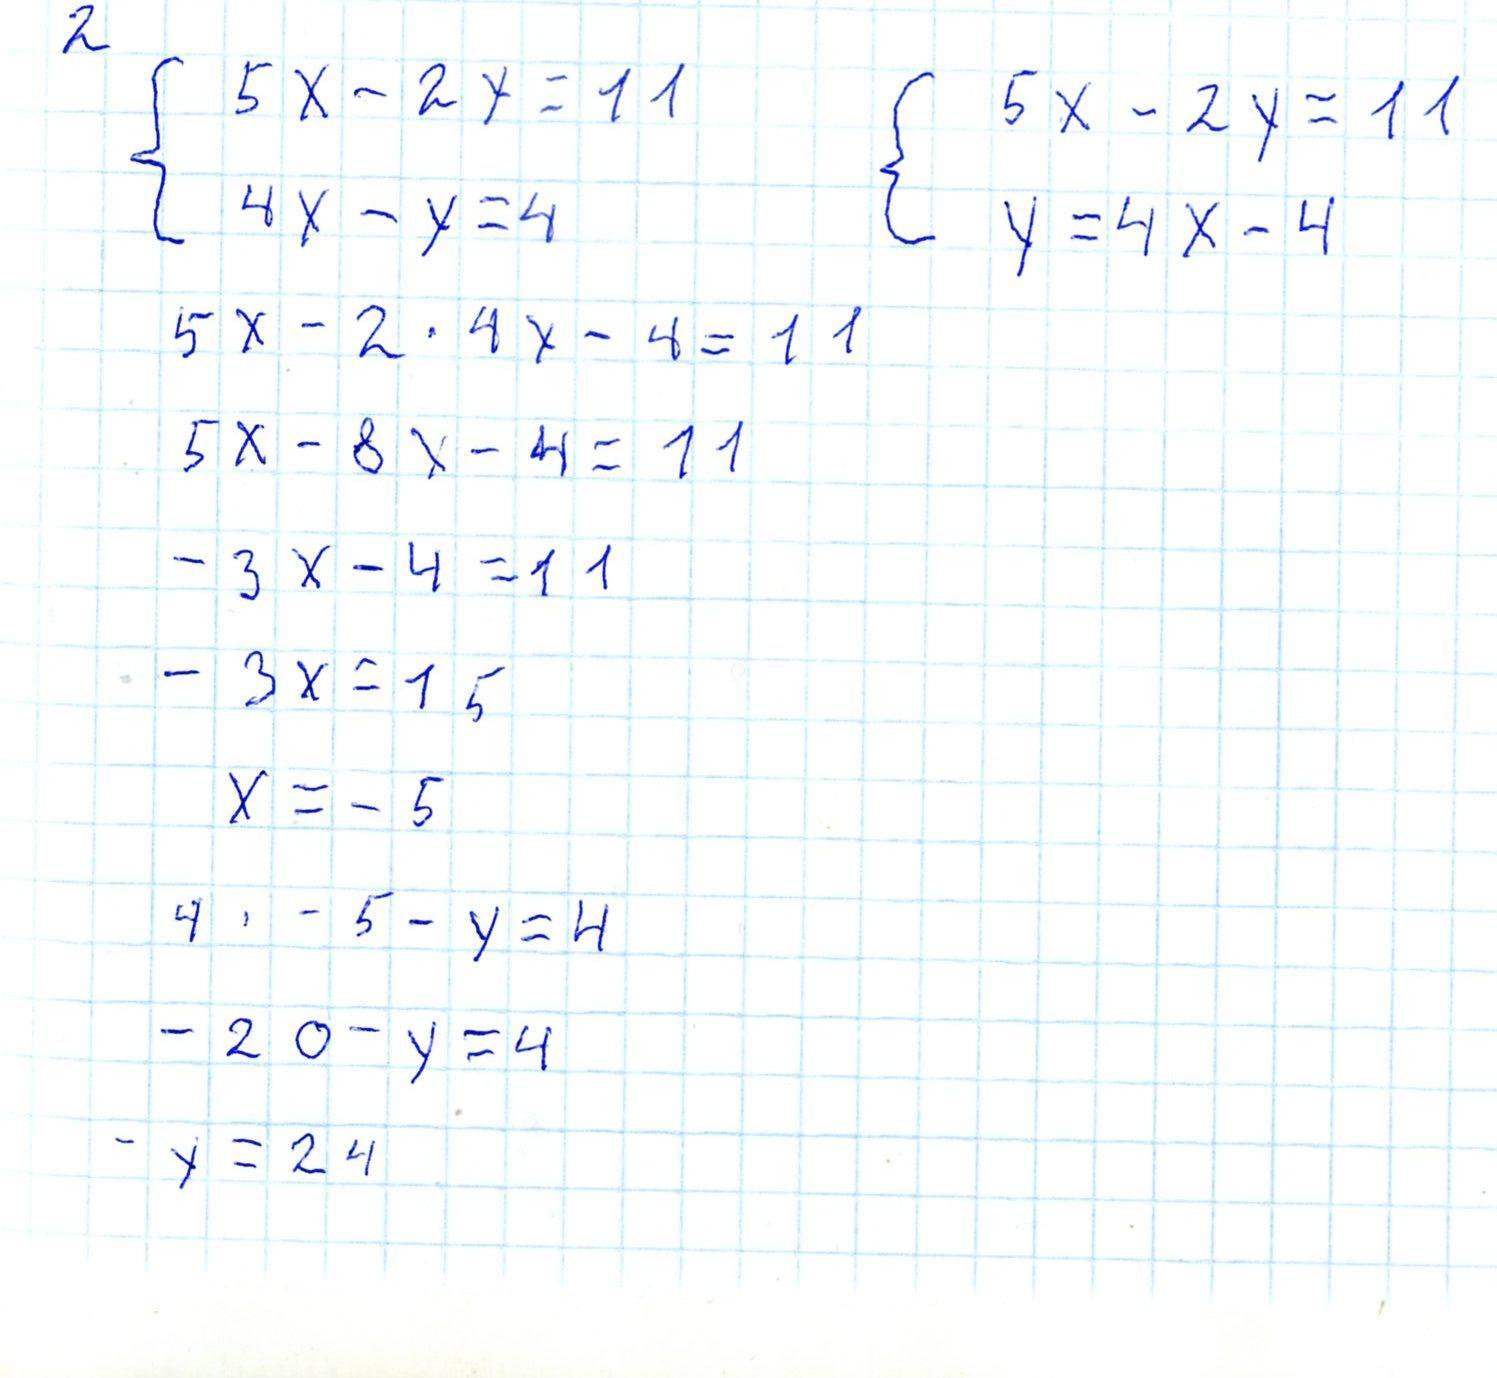 2
5x - 2y = 11
4x - y = 4
5x - 2y = 11
y = 4x - 4
5x - 2 · 4x - 4 = 11
5x - 8x - 4 = 11
- 3x - 4 = 11
- 3x = 15
x = - 5
4 · - 5 - y = 4
- 20 - y = 4
- y = 24